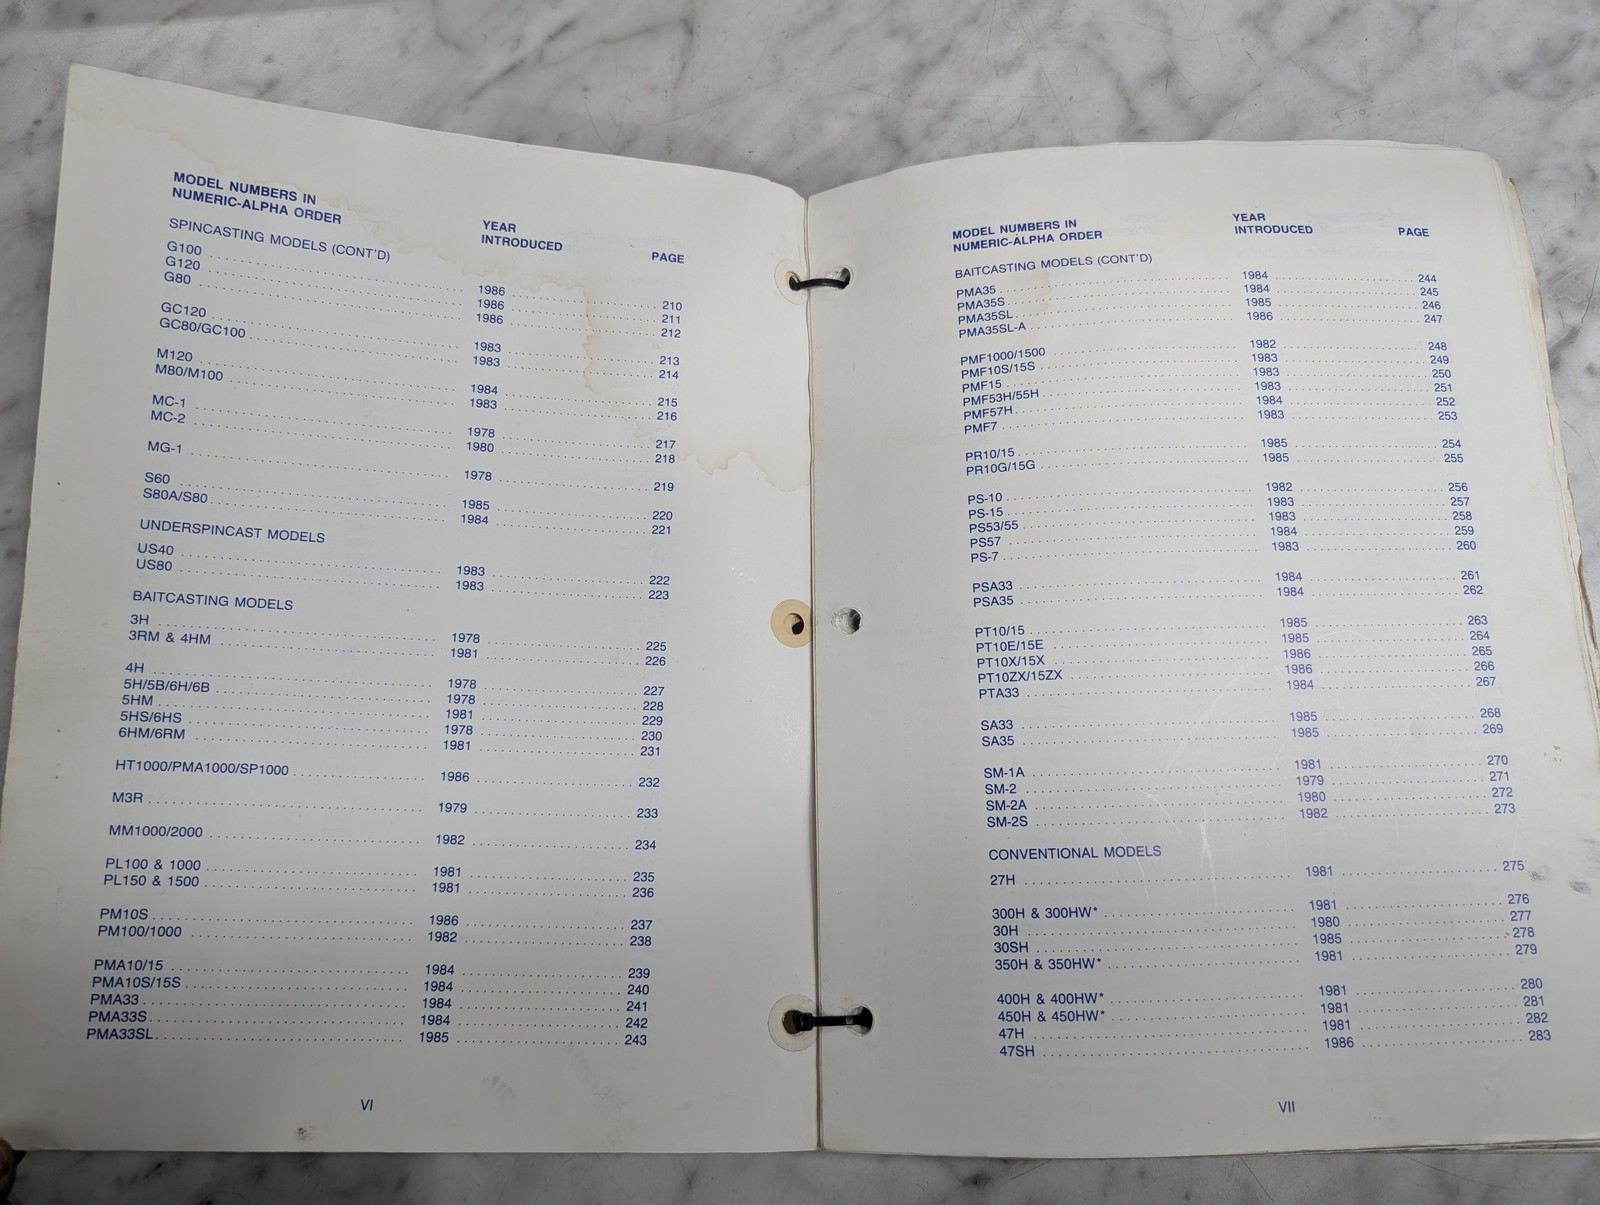 MODEL NUMBERS IN
NUMERIC-ALPHA ORDER
YEAR
INTRODUCED
PAGE
SPINCASTING MODELS (CONT'D)
G100 1986 210
G120 1986 211
G80 1986 212
GC120 1983 213
GC80/GC100 1983 214
M120 1984 215
M80/M100 1983 216
MC-1 1978 217
MC-2 1980 218
MG-1 1978 219
S60 1985 220
S80A/S80 1984 221
UNDERSPINCAST MODELS
US40 1983 222
US80 1983 223
BAITCASTING MODELS
3H 1978 225
3RM & 4HM 1981 226
4H 1978 227
5H/5B/6H/6B 1978 228
5HM 1981 229
5HS/6HS 1978 230
6HM/6RM 1981 231
HT1000/PMA1000/SP1000 1986 232
M3R 1979 233
MM1000/2000 1982 234
PL100 & 1000 1981 235
PL150 & 1500 1981 236
PM10S 1986 237
PM100/1000 1982 238
PMA10/15 1984 239
PMA10S/15S 1984 240
PMA33 1984 241
PMA33S 1984 242
PMA33SL 1985 243
VI
MODEL NUMBERS IN
NUMERIC-ALPHA ORDER
YEAR
INTRODUCED
PAGE
BAITCASTING MODELS (CONT'D)
PMA35 1984 244
PMA35S 1984 245
PMA35SL 1985 246
PMA35SL-A 1986 247
PMF1000/1500 1982 248
PMF10S/15S 1983 249
PMF15 1983 250
PMF53H/55H 1983 251
PMF57H 1984 252
PMF7 1983 253
PR10/15 1985 254
PR10G/15G 1985 255
PS-10 1982 256
PS-15 1983 257
PS53/55 1983 258
PS57 1984 259
PS-7 1983 260
PSA33 1984 261
PSA35 1984 262
PT10/15 1985 263
PT10E/15E 1985 264
PT10X/15X 1986 265
PT10ZX/15ZX 1986 266
PTA33 1984 267
SA33 1985 268
SA35 1985 269
SM-1A 1981 270
SM-2 1979 271
SM-2A 1980 272
SM-2S 1982 273
CONVENTIONAL MODELS
27H 1981 275
300H & 300HW* 1981 276
30H 1980 277
30SH 1985 278
350H & 350HW* 1981 279
400H & 400HW* 1981 280
450H & 450HW* 1981 281
47H 1981 282
47SH 1986 283
VII